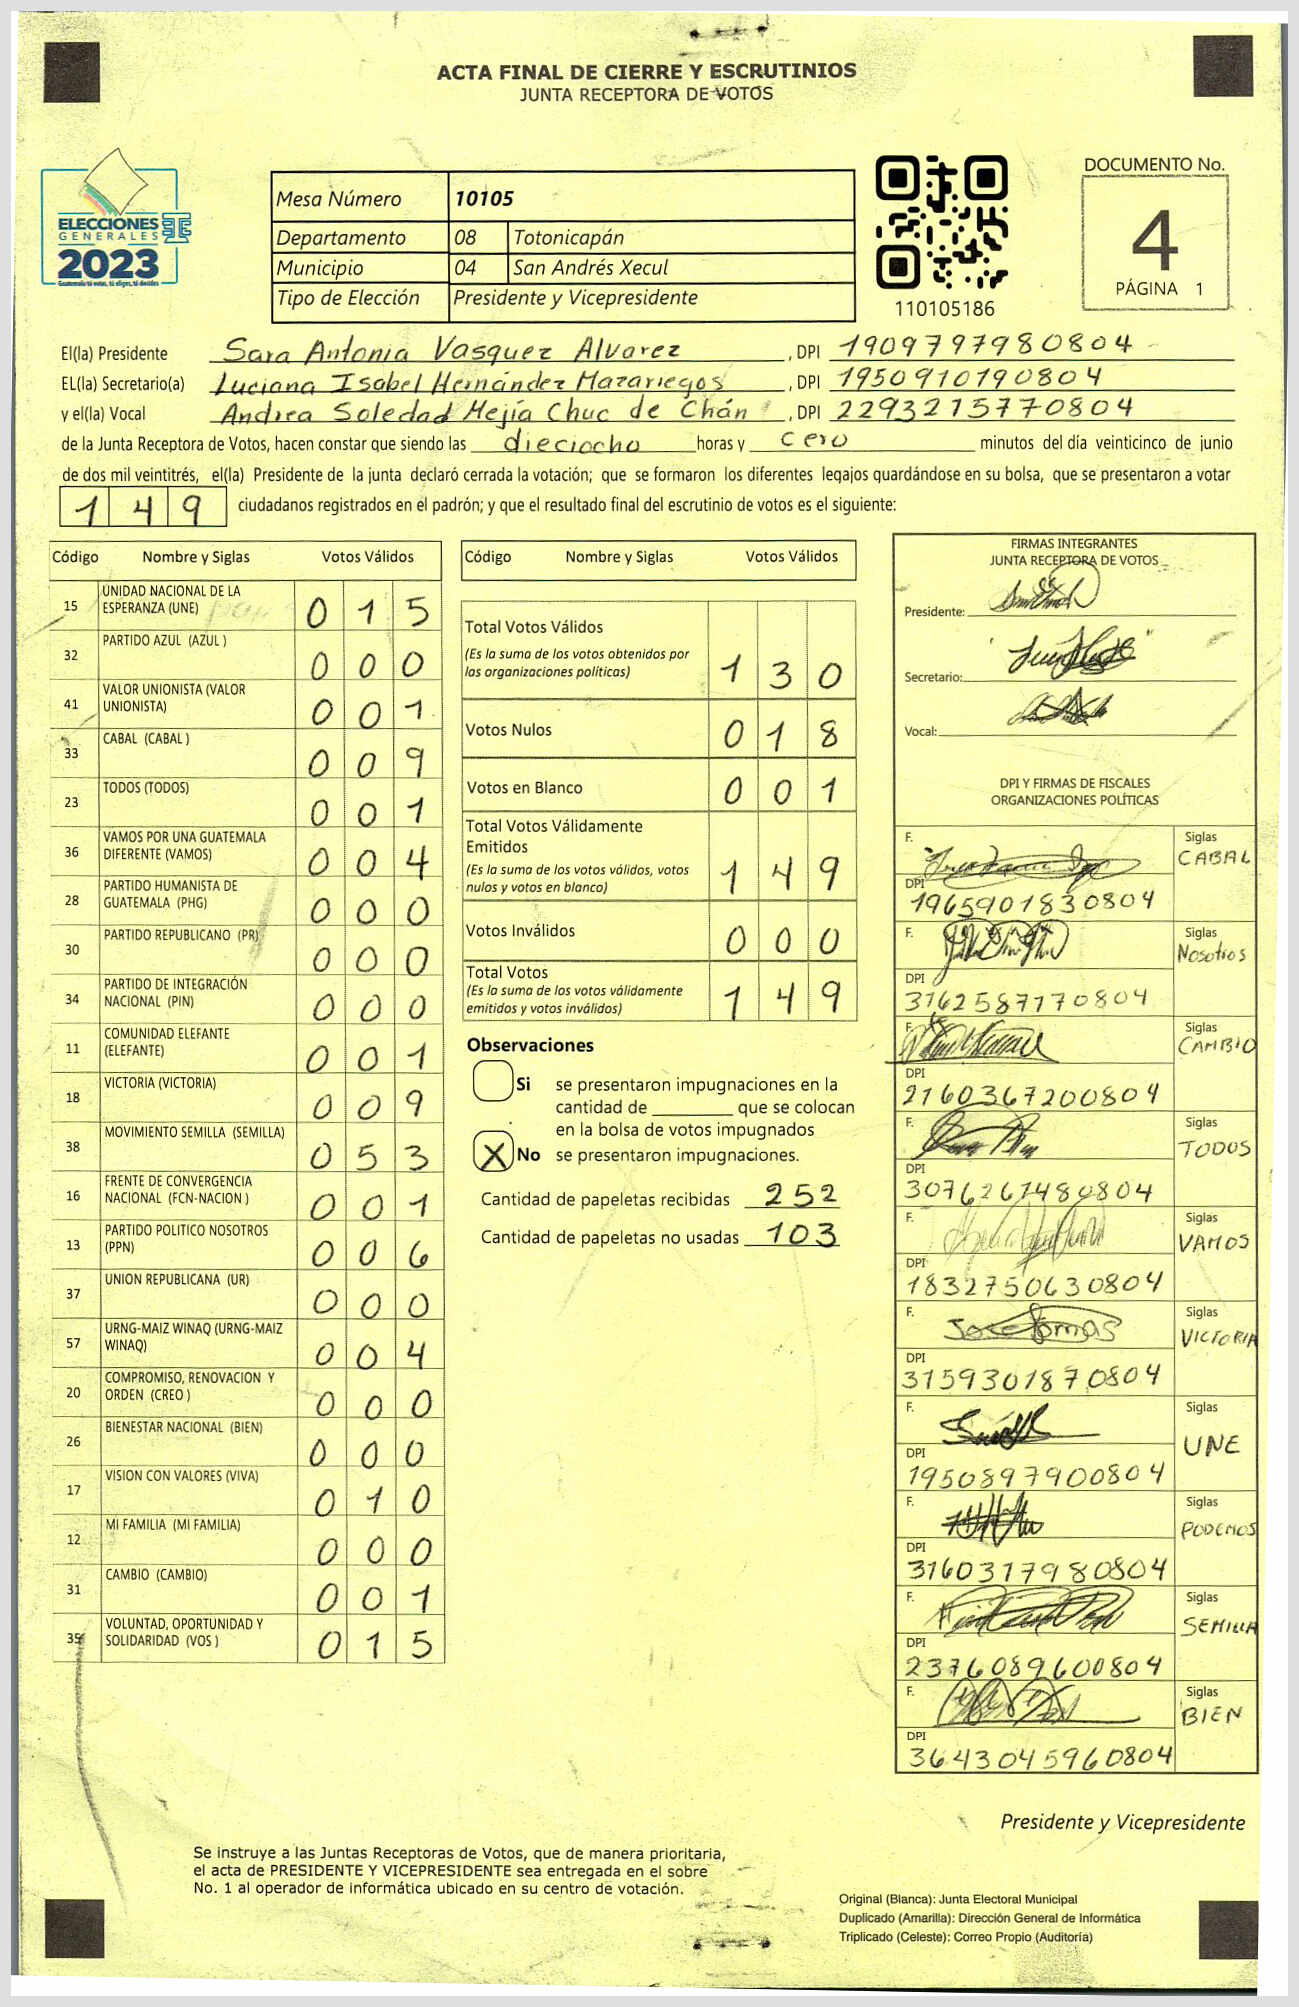 ACTA FINAL DE CIERRE Y ESCRUTINIOS
JUNTA RECEPTORA DE VOTOS
ELECCIONES
GENERALES
2023
Guatemala tú votas, tú eliges, tú decides
Mesa Número 10105
Departamento 08 Totonicapán
Municipio 04 San Andrés Xecul
Tipo de Elección Presidente y Vicepresidente
110105186
DOCUMENTO No.
4
PÁGINA 1
El(la) Presidente Sara Antonia Vasquez Alvarez , DPI 1909797980804
EL(la) Secretario(a) Luciana Isabel Hernández Mazariegos , DPI 1950910190804
y el(la) Vocal Andrea Soledad Mejía Chuc de Chán , DPI 2293215770804
de la Junta Receptora de Votos, hacen constar que siendo las dieciocho horas y cero minutos del día veinticinco de junio
de dos mil veintitrés, el(la) Presidente de la junta declaró cerrada la votación; que se formaron los diferentes legajos guardándose en su bolsa, que se presentaron a votar
149 ciudadanos registrados en el padrón; y que el resultado final del escrutinio de votos es el siguiente:
Código Nombre y Siglas Votos Válidos
15 UNIDAD NACIONAL DE LA ESPERANZA (UNE) 015
32 PARTIDO AZUL (AZUL ) 000
41 VALOR UNIONISTA (VALOR UNIONISTA) 001
33 CABAL (CABAL ) 009
23 TODOS (TODOS) 001
36 VAMOS POR UNA GUATEMALA DIFERENTE (VAMOS) 004
28 PARTIDO HUMANISTA DE GUATEMALA (PHG) 000
30 PARTIDO REPUBLICANO (PR) 000
34 PARTIDO DE INTEGRACIÓN NACIONAL (PIN) 000
11 COMUNIDAD ELEFANTE (ELEFANTE) 001
18 VICTORIA (VICTORIA) 009
38 MOVIMIENTO SEMILLA (SEMILLA) 053
16 FRENTE DE CONVERGENCIA NACIONAL (FCN-NACION ) 001
13 PARTIDO POLITICO NOSOTROS (PPN) 006
37 UNION REPUBLICANA (UR) 000
57 URNG-MAIZ WINAQ (URNG-MAIZ WINAQ) 004
20 COMPROMISO, RENOVACION Y ORDEN (CREO ) 000
26 BIENESTAR NACIONAL (BIEN) 000
17 VISION CON VALORES (VIVA) 010
12 MI FAMILIA (MI FAMILIA) 000
31 CAMBIO (CAMBIO) 001
35 VOLUNTAD, OPORTUNIDAD Y SOLIDARIDAD (VOS ) 015
Código Nombre y Siglas Votos Válidos
Total Votos Válidos
(Es la suma de los votos obtenidos por
las organizaciones políticas) 130
Votos Nulos 018
Votos en Blanco 001
Total Votos Válidamente
Emitidos
(Es la suma de los votos válidos, votos
nulos y votos en blanco) 149
Votos Inválidos 000
Total Votos
(Es la suma de los votos válidamente
emitidos y votos inválidos) 149
Observaciones
Si se presentaron impugnaciones en la
cantidad de ________ que se colocan
en la bolsa de votos impugnados
X No se presentaron impugnaciones.
Cantidad de papeletas recibidas 252
Cantidad de papeletas no usadas 103
FIRMAS INTEGRANTES
JUNTA RECEPTORA DE VOTOS
Presidente:
Secretario:
Vocal:
DPI Y FIRMAS DE FISCALES
ORGANIZACIONES POLÍTICAS
F. Siglas CABAL
DPI 1965901830804
F. Siglas Nosotros
DPI 3162587170804
F. Siglas CAMBIO
DPI 2160367200804
F. Siglas TODOS
DPI 3076267480804
F. Siglas VAMOS
DPI 1832750630804
F. Siglas VICTORIA
DPI 3159301870804
F. Siglas UNE
DPI 1950897900804
F. Siglas PODEMOS
DPI 3160317980804
F. Siglas SEMILLA
DPI 2376089600804
F. Siglas BIEN
DPI 3643045960804
Presidente y Vicepresidente
Se instruye a las Juntas Receptoras de Votos, que de manera prioritaria,
el acta de PRESIDENTE Y VICEPRESIDENTE sea entregada en el sobre
No. 1 al operador de informática ubicado en su centro de votación.
Original (Blanca): Junta Electoral Municipal
Duplicado (Amarilla): Dirección General de Informática
Triplicado (Celeste): Correo Propio (Auditoría)